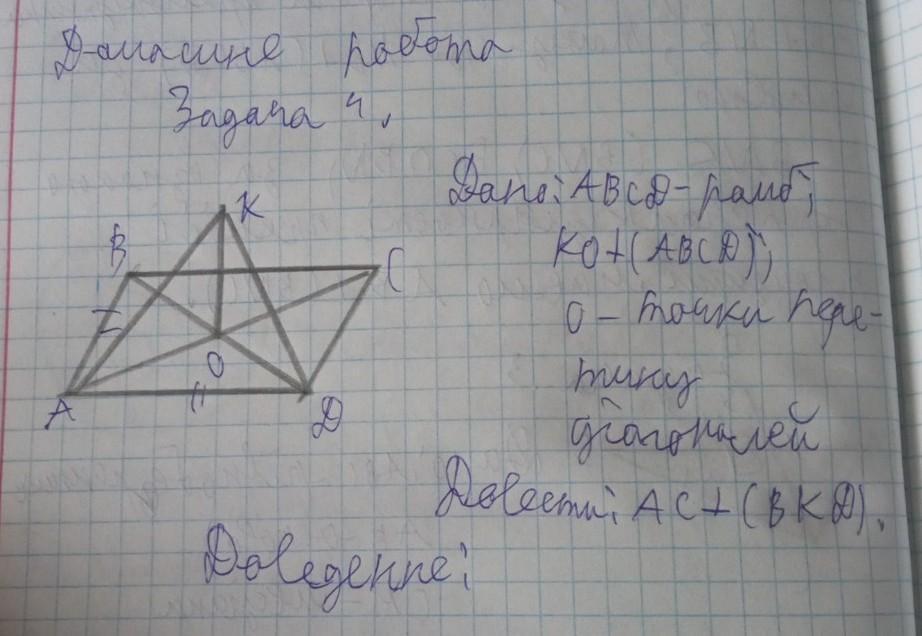 Домашнє робота
Задача 4.
Дано: ABCD - ромб;
KO⊥(ABCD);
O - точка пере-
тину
діагоналей
Довести: AC⊥(BKD).
Доведення:
K
B
C
O
A
D